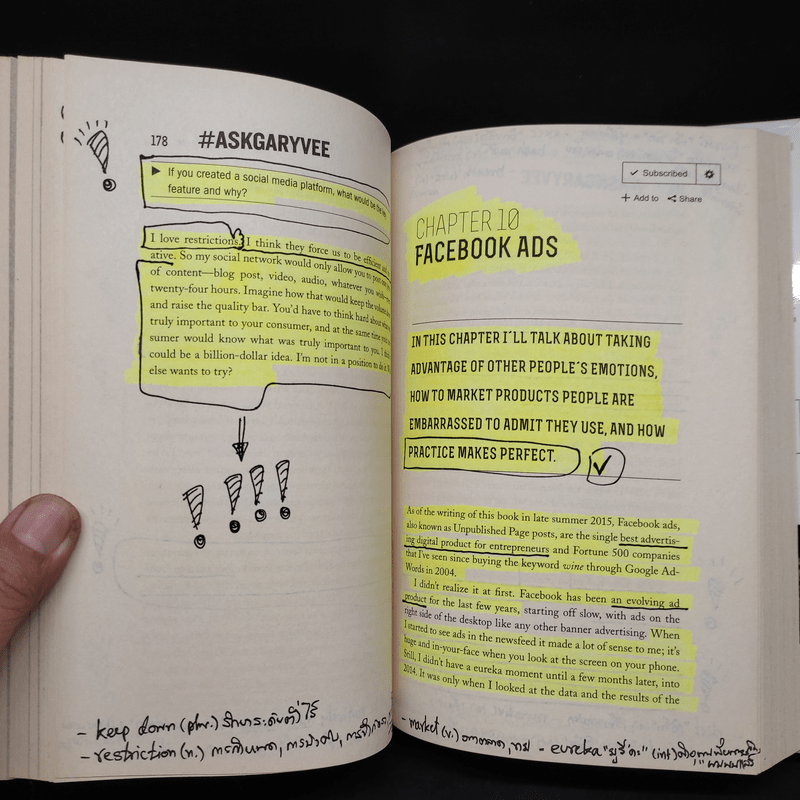 178 #ASKGARYVEE
▶ If you created a social media platform, what would be the key
feature and why?
I love restrictions. I think they force us to be efficient and
ative. So my social network would only allow you to post one
of content—blog post, video, audio, whatever you
twenty-four hours. Imagine how that would keep the volume
and raise the quality bar. You'd have to think hard about what
truly important to your consumer, and at the same time
sumer would know what was truly important to you. I think
could be a billion-dollar idea. I'm not in a position to do it.
else wants to try?
- keep down (phr.) รักษาระดับต่ำไว้
- restriction (n.) การกำหนด, การบังคับ, การจำกัด
✓ Subscribed
+ Add to Share
CHAPTER 10
FACEBOOK ADS
IN THIS CHAPTER I'LL TALK ABOUT TAKING
ADVANTAGE OF OTHER PEOPLE'S EMOTIONS,
HOW TO MARKET PRODUCTS PEOPLE ARE
EMBARRASSED TO ADMIT THEY USE, AND HOW
PRACTICE MAKES PERFECT.
As of the writing of this book in late summer 2015, Facebook ads,
also known as Unpublished Page posts, are the single best advertis-
ing digital product for entrepreneurs and Fortune 500 companies
that I've seen since buying the keyword wine through Google Ad-
Words in 2004.
I didn't realize it at first. Facebook has been an evolving ad
product for the last few years, starting off slow, with ads on the
right side of the desktop like any other banner advertising. When
I started to see ads in the newsfeed it made a lot of sense to me; it's
huge and in-your-face when you look at the screen on your phone.
Still, I didn't have a eureka moment until a few months later, into
2014. It was only when I looked at the data and the results of the
- market (v.) - eureka "ยูรีกะ" (int)